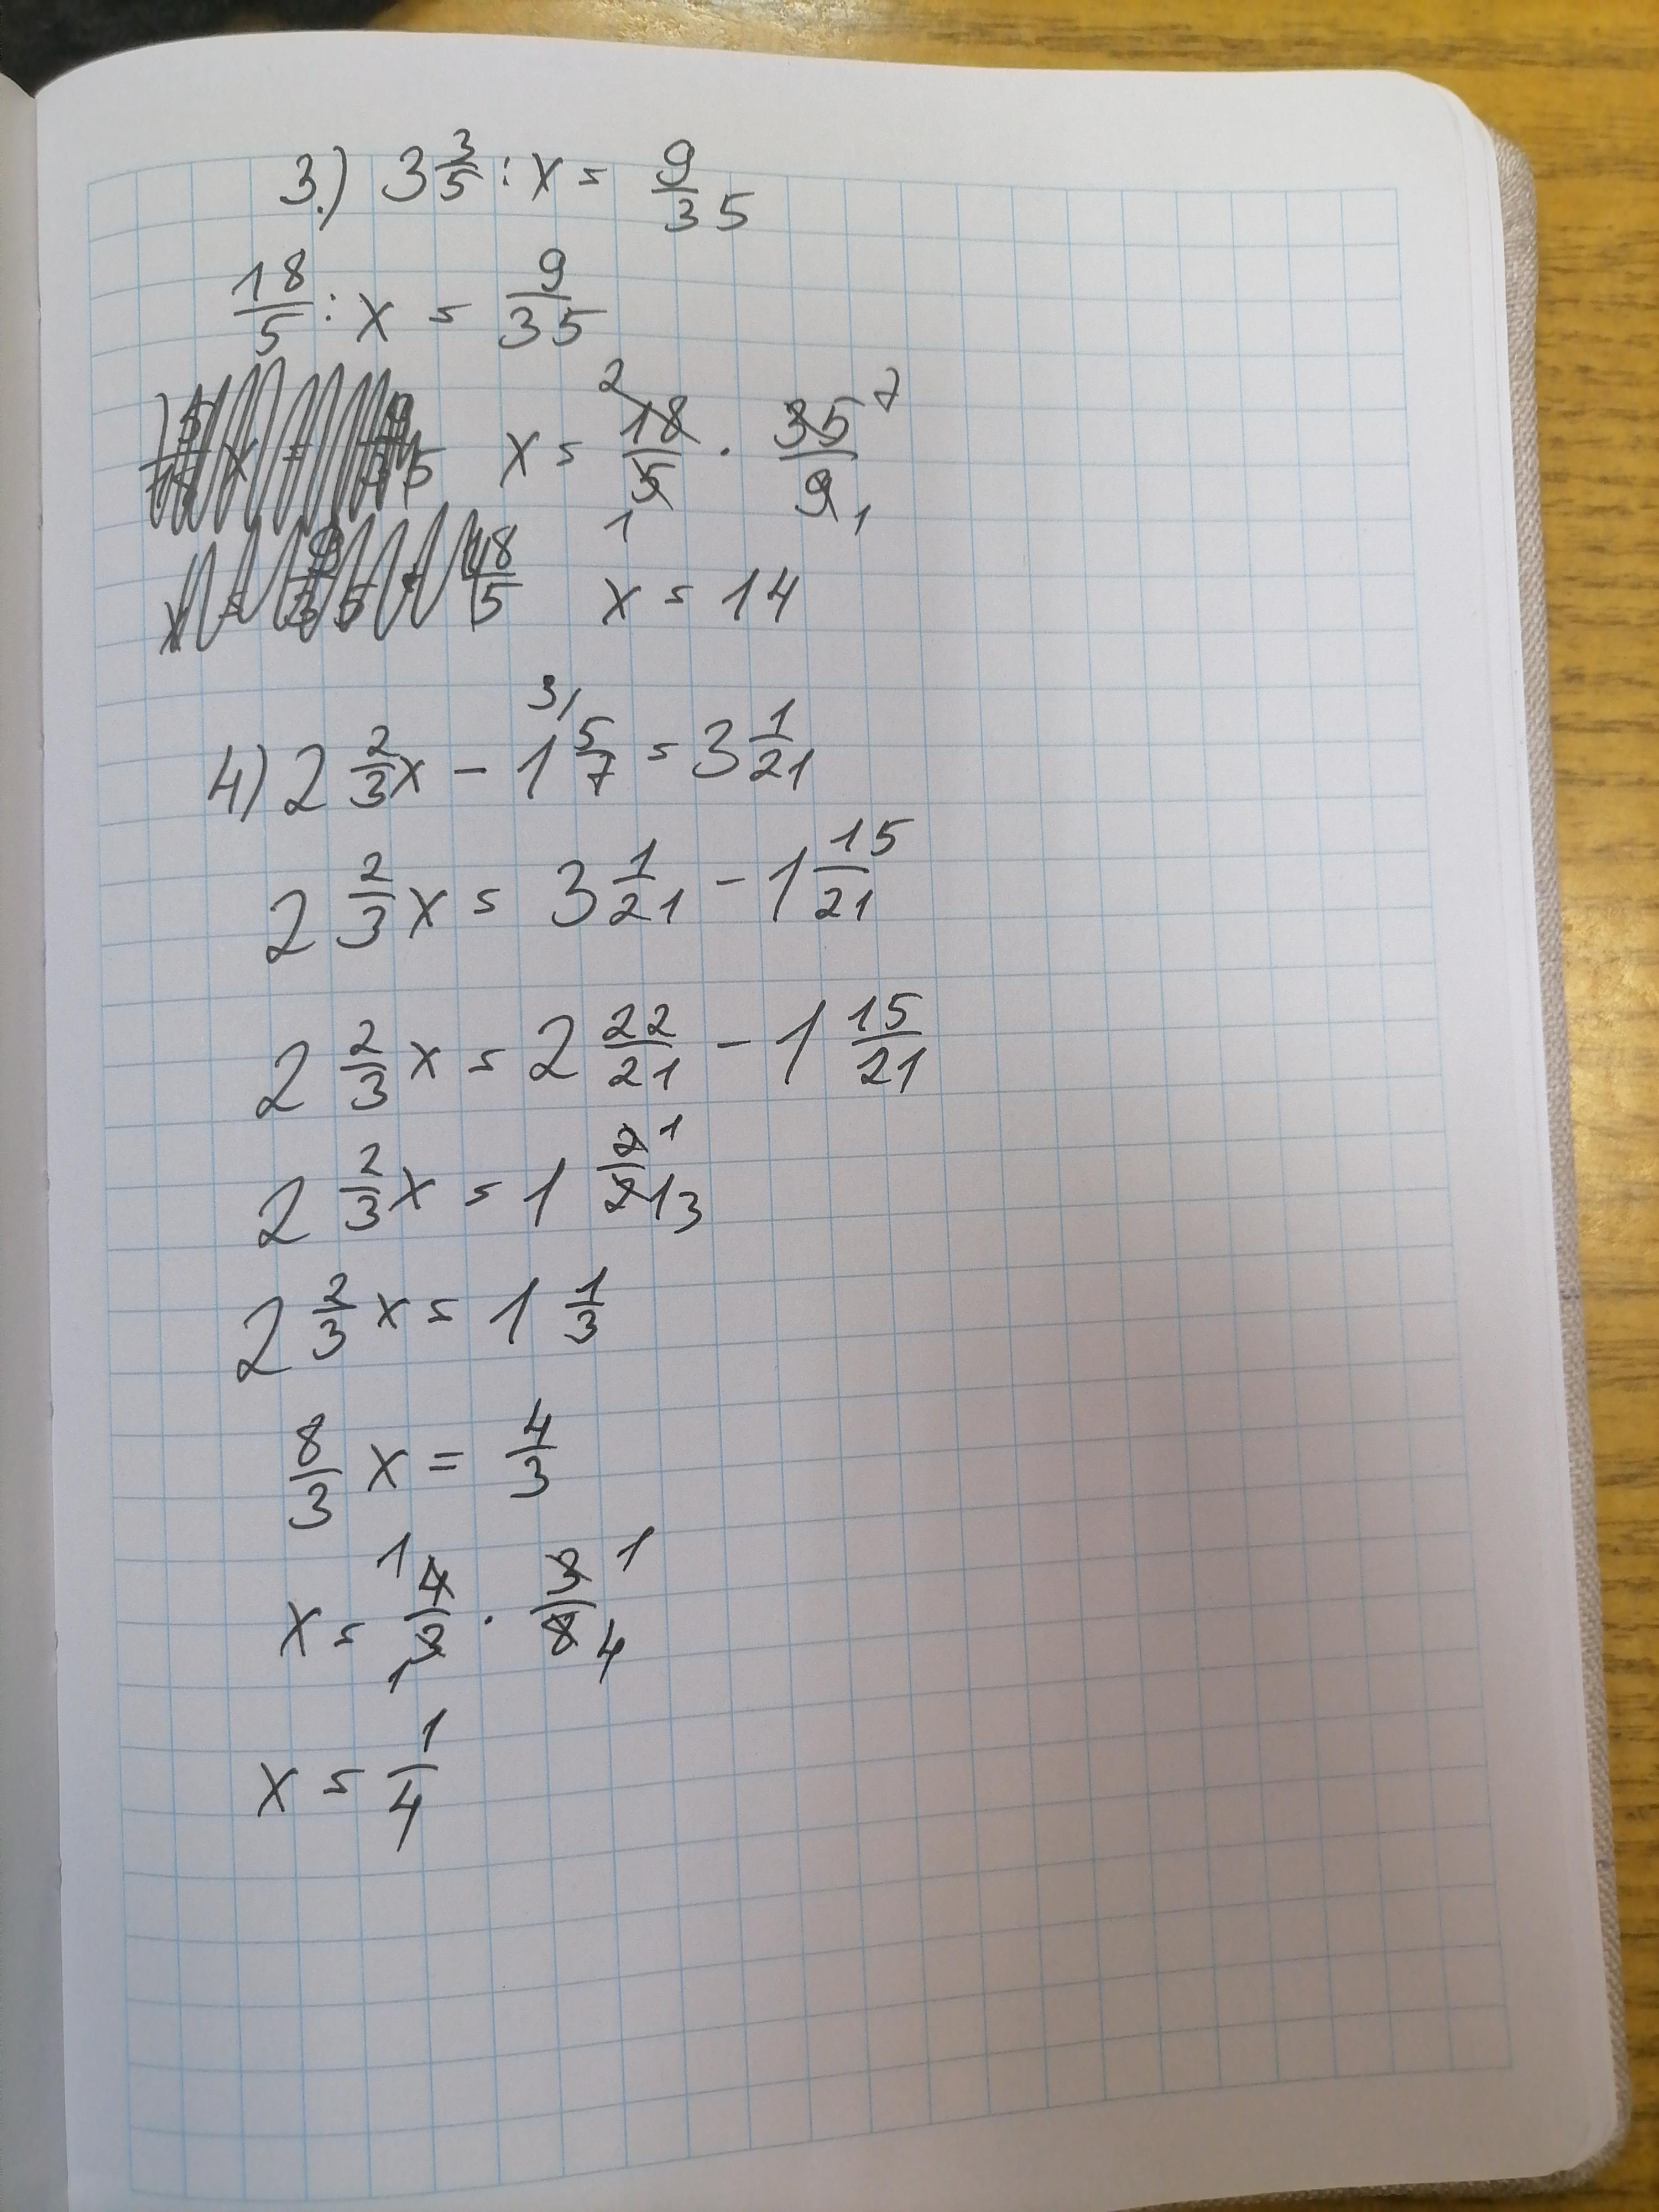 3.) 3 3/5 : x = 9/35
18/5 : x = 9/35
x = 18/5 · 35/9 2 7 1 1
x = 14
4) 2 2/3 x - 1 5/7 = 3 1/21 3/
2 2/3 x = 3 1/21 - 1 15/21
2 2/3 x = 2 22/21 - 1 15/21
2 2/3 x = 1 7/21 1 3
2 2/3 x = 1 1/3
8/3 x = 4/3
x = 4/3 · 3/8 1 1 1 4
x = 1/4